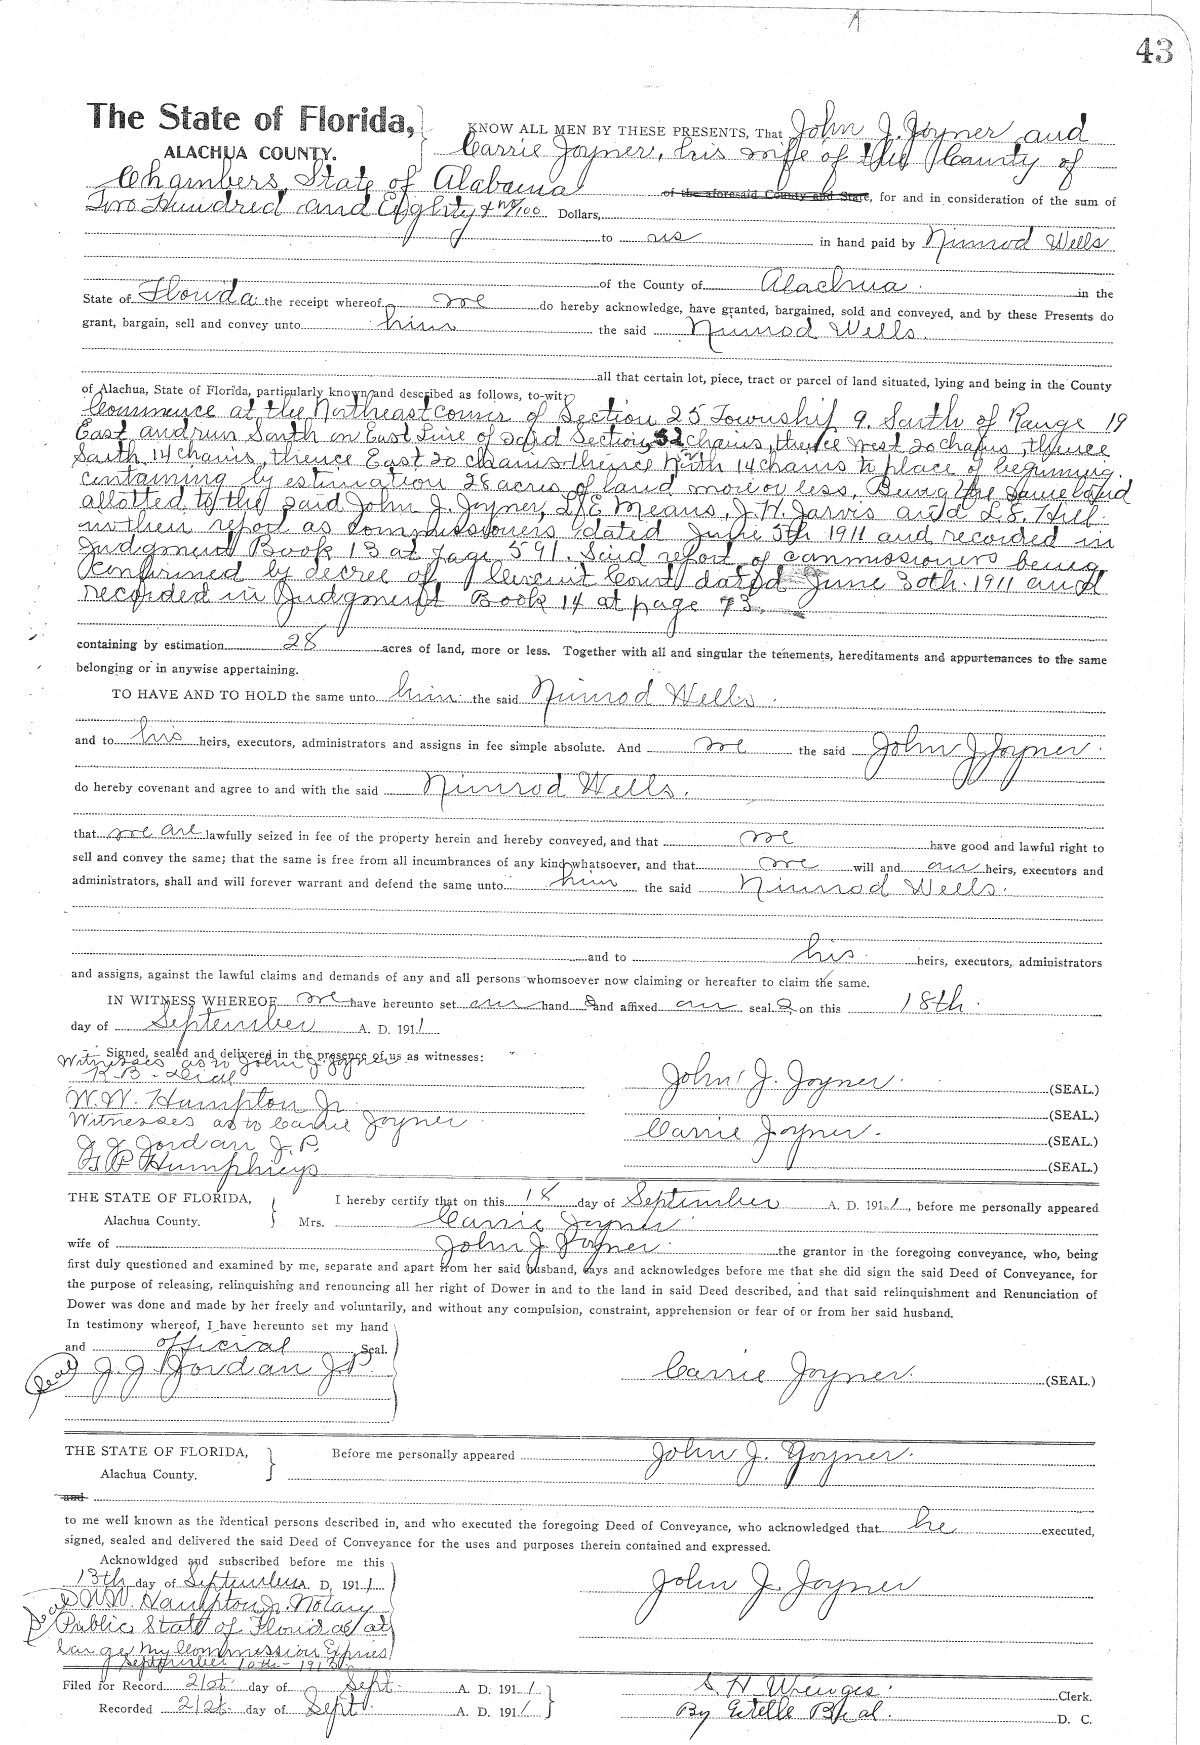 43
The State of Florida,
ALACHUA COUNTY.
KNOW ALL MEN BY THESE PRESENTS, That John J. Joyner and
Carrie Joyner, his wife of the County of
Chambers, State of Alabama of the aforesaid County and State, for and in consideration of the sum of
Two Hundred and Eighty & no/100 Dollars,
to us in hand paid by Nimrod Wells
of the County of Alachua in the
State of Florida the receipt whereof we do hereby acknowledge, have granted, bargained, sold and conveyed, and by these Presents do
grant, bargain, sell and convey unto him the said Nimrod Wells.
all that certain lot, piece, tract or parcel of land situated, lying and being in the County
of Alachua, State of Florida, particularly known and described as follows, to-wit:
Commence at the Northeast corner of Section 25 Township 9. South of Range 19
East and run South on East Line of said Section 52 chains, thence West 20 chains, thence
South 14 chains, thence East 20 chains thence North 14 chains to place of beginning.
containing by estimation 28 acres of land more or less, Being the same land
allotted to the said John J. Joyner, L. E. Means, J. H. Jarvis and L. S. Hill
in their report as commissioners dated June 5th 1911 and recorded in
Judgment Book 13 at page 591. Said report of commissioners being
confirmed by decree of Circuit Court dated June 30th. 1911 and
recorded in Judgment Book 14 at page 73.
containing by estimation 28 acres of land, more or less. Together with all and singular the tenements, hereditaments and appurtenances to the same
belonging or in anywise appertaining.
TO HAVE AND TO HOLD the same unto him the said Nimrod Wells.
and to his heirs, executors, administrators and assigns in fee simple absolute. And we the said John J Joyner.
do hereby covenant and agree to and with the said Nimrod Wells.
that we are lawfully seized in fee of the property herein and hereby conveyed, and that we have good and lawful right to
sell and convey the same; that the same is free from all incumbrances of any kind whatsoever, and that we will and our heirs, executors and
administrators, shall and will forever warrant and defend the same unto him the said Nimrod Wells.
and to his heirs, executors, administrators
and assigns, against the lawful claims and demands of any and all persons whomsoever now claiming or hereafter to claim the same.
IN WITNESS WHEREOF we have hereunto set our hand s and affixed our seal s on this 18th.
day of September A. D. 1911
Signed, sealed and delivered in the presence of us as witnesses:
Witnesses as to John J. Joyner
R. B. Dial
W. W. Hampton Jr.
Witnesses as to Carrie Joyner
J. J. Jordan J. P.
Humphreys
John J. Joyner. (SEAL.)
(SEAL.)
Carrie Joyner. (SEAL.)
(SEAL.)
THE STATE OF FLORIDA,
Alachua County.
I hereby certify that on this 18 day of September A. D. 1911, before me personally appeared
Mrs. Carrie Joyner
wife of John J Joyner. the grantor in the foregoing conveyance, who, being
first duly questioned and examined by me, separate and apart from her said husband, says and acknowledges before me that she did sign the said Deed of Conveyance, for
the purpose of releasing, relinquishing and renouncing all her right of Dower in and to the land in said Deed described, and that said relinquishment and Renunciation of
Dower was done and made by her freely and voluntarily, and without any compulsion, constraint, apprehension or fear of or from her said husband.
In testimony whereof, I have hereunto set my hand
and official Seal.
Seal J. J. Jordan J.P.
Carrie Joyner. (SEAL.)
THE STATE OF FLORIDA,
Alachua County.
Before me personally appeared John J. Joyner.
and
to me well known as the identical persons described in, and who executed the foregoing Deed of Conveyance, who acknowledged that he executed,
signed, sealed and delivered the said Deed of Conveyance for the uses and purposes therein contained and expressed.
Acknowldged and subscribed before me this
13th day of September A. D. 1911
Seal W. W. Hampton Jr. Notary
Public State of Florida at
Large My Commission Expires
September 10th -
John J. Joyner
Filed for Record 21st. day of Sept. A. D. 1911
Recorded 21st. day of Sept A. D. 1911
S. H. Wienges. Clerk.
By Estelle Beal. D. C.